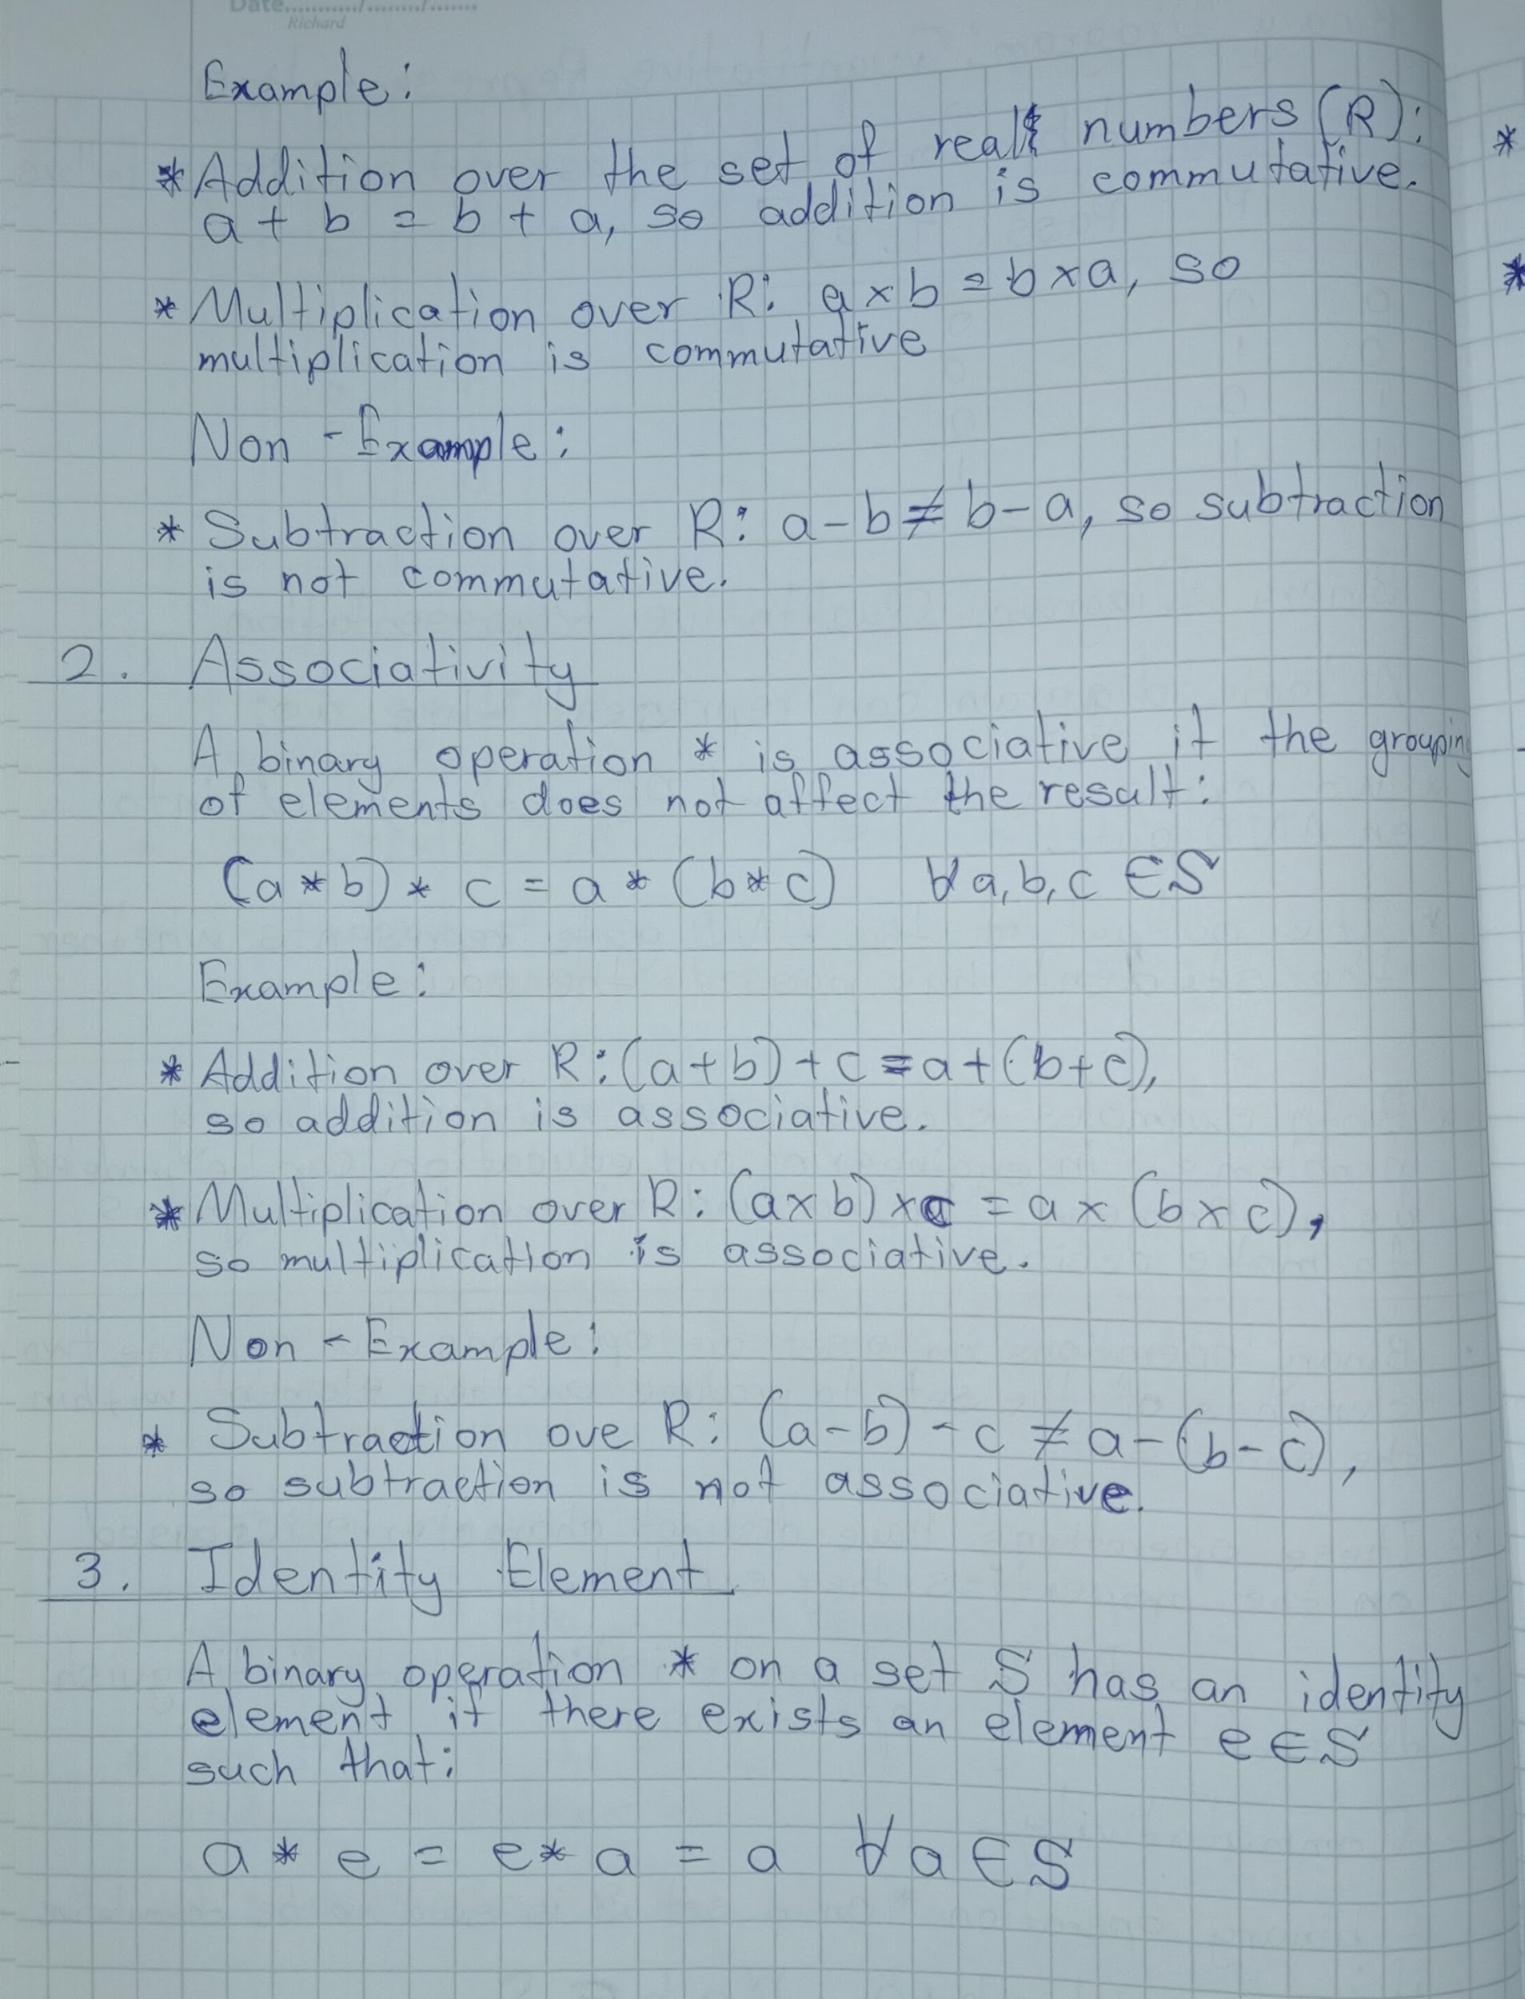 Date.........../........./.......
Richard
Example:
* Addition over the set of real numbers (R):
a + b = b + a, so addition is commutative.
* Multiplication over R: a × b = b × a, so
multiplication is commutative
Non - Example:
* Subtraction over R: a - b ≠ b - a, so subtraction
is not commutative.
2. Associativity
A binary operation * is associative if the grouping
of elements does not affect the result:
(a * b) * c = a * (b * c) ∀ a, b, c ∈ S
Example:
* Addition over R: (a + b) + c = a + (b + c),
so addition is associative.
* Multiplication over R: (a × b) × c = a × (b × c),
so multiplication is associative.
Non - Example:
* Subtraction ove R: (a - b) - c ≠ a - (b - c),
so subtraction is not associative.
3. Identity Element
A binary operation * on a set S has an identity
element if there exists an element e ∈ S
such that:
a * e = e * a = a ∀ a ∈ S